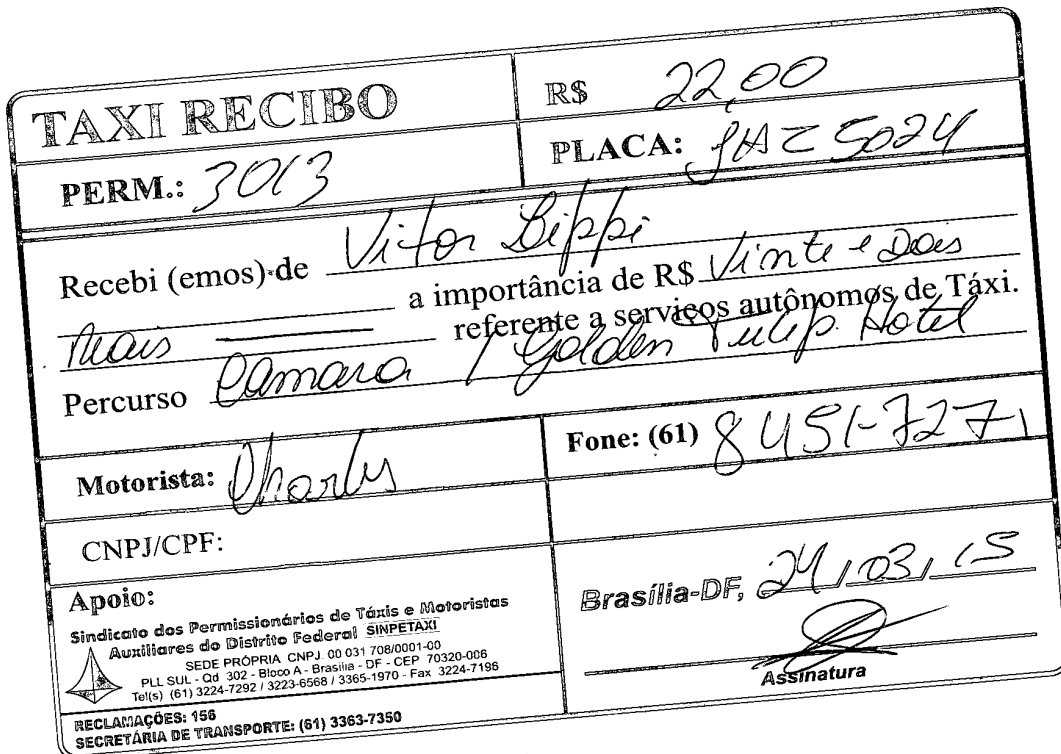 TAXI RECIBO
R$ 22,00
PERM.: 3013
PLACA: JHZ 5024
Recebi (emos) de Vitor Lippi
a importância de R$ Vinte e Dois
Reais referente a serviços autônomos de Táxi.
Percurso Camara / Golden Tulip Hotel
Motorista: Charles
Fone: (61) 8451-7271
CNPJ/CPF:
Apoio:
Sindicato dos Permissionários de Táxis e Motoristas
Auxiliares do Distrito Federal SINPETAXI
SEDE PRÓPRIA CNPJ 00 031 708/0001-00
PLL SUL - Qd 302 - Bloco A - Brasília - DF - CEP 70320-006
Tel(s) (61) 3224-7292 / 3223-6568 / 3365-1970 - Fax 3224-7196
RECLAMAÇÕES: 156
SECRETÁRIA DE TRANSPORTE: (61) 3363-7350
Brasília-DF, 24/03/15
Assinatura